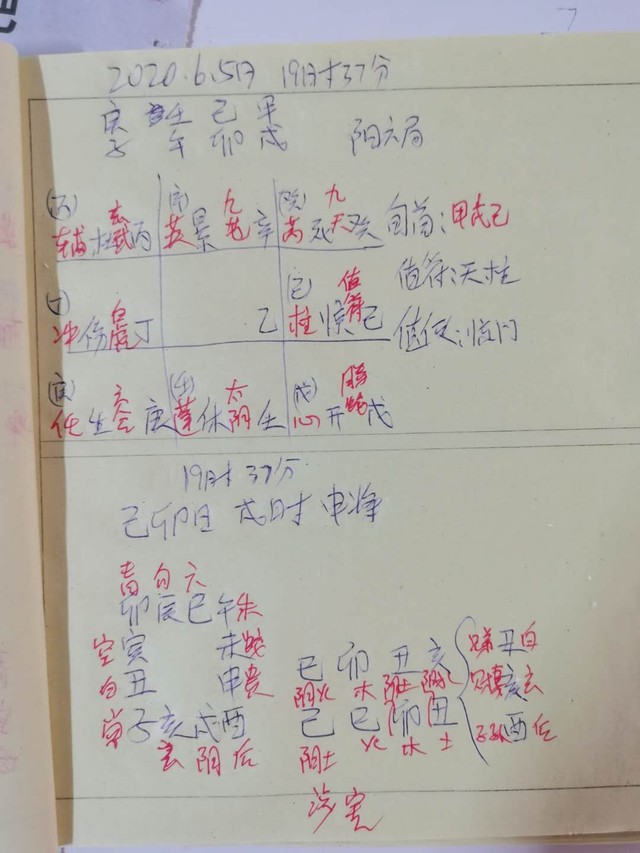 2020.6.5日 19时37分
庚 壬 己 甲
子 午 卯 戌 阳六局
(丙) 玄 (辛) 九 (癸) 九 旬首:甲戌己
辅杜武丙 英景地辛 芮死天癸
(丁) 白 (己) 值 值符:天柱
冲伤虎丁 乙 柱惊符己 值使:惊门
(庚) 六 (壬) 太 (戊) 腾
任生合庚 蓬休阴壬 心开蛇戊
19时37分
己卯日 戌时 申将
青 勾 六
卯辰巳午朱
空寅 未蛇
白丑 申贵
常子亥戌酉
玄 阴 后
巳 卯 丑 亥
阴火 木 阴土 阴水
己 巳 卯 丑
阴土 火 木 土
丑白
亥玄
子孙酉后
涉害